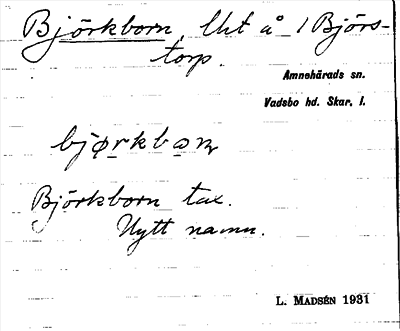 Björkborn, lht å 1 Björs-
torp.
Amnehärads sn.
Vadsbo hd. Skar. l.
bjørkbɔɳ
Björkborn tax.
Nytt namn.
L. MADSÉN 1931